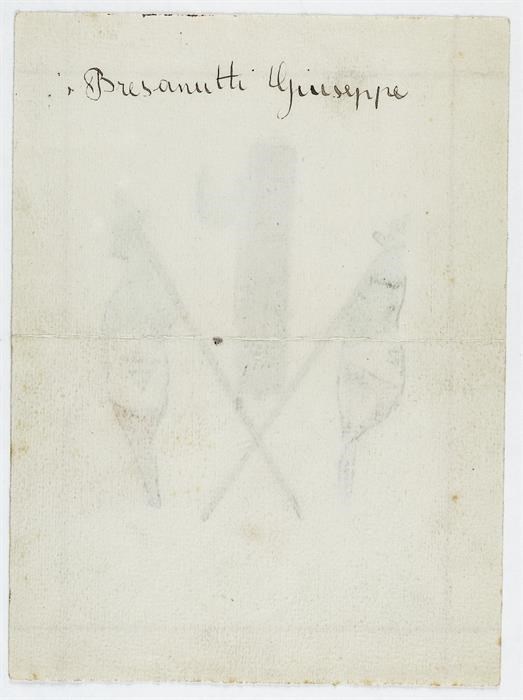 Bresanutti Giuseppe